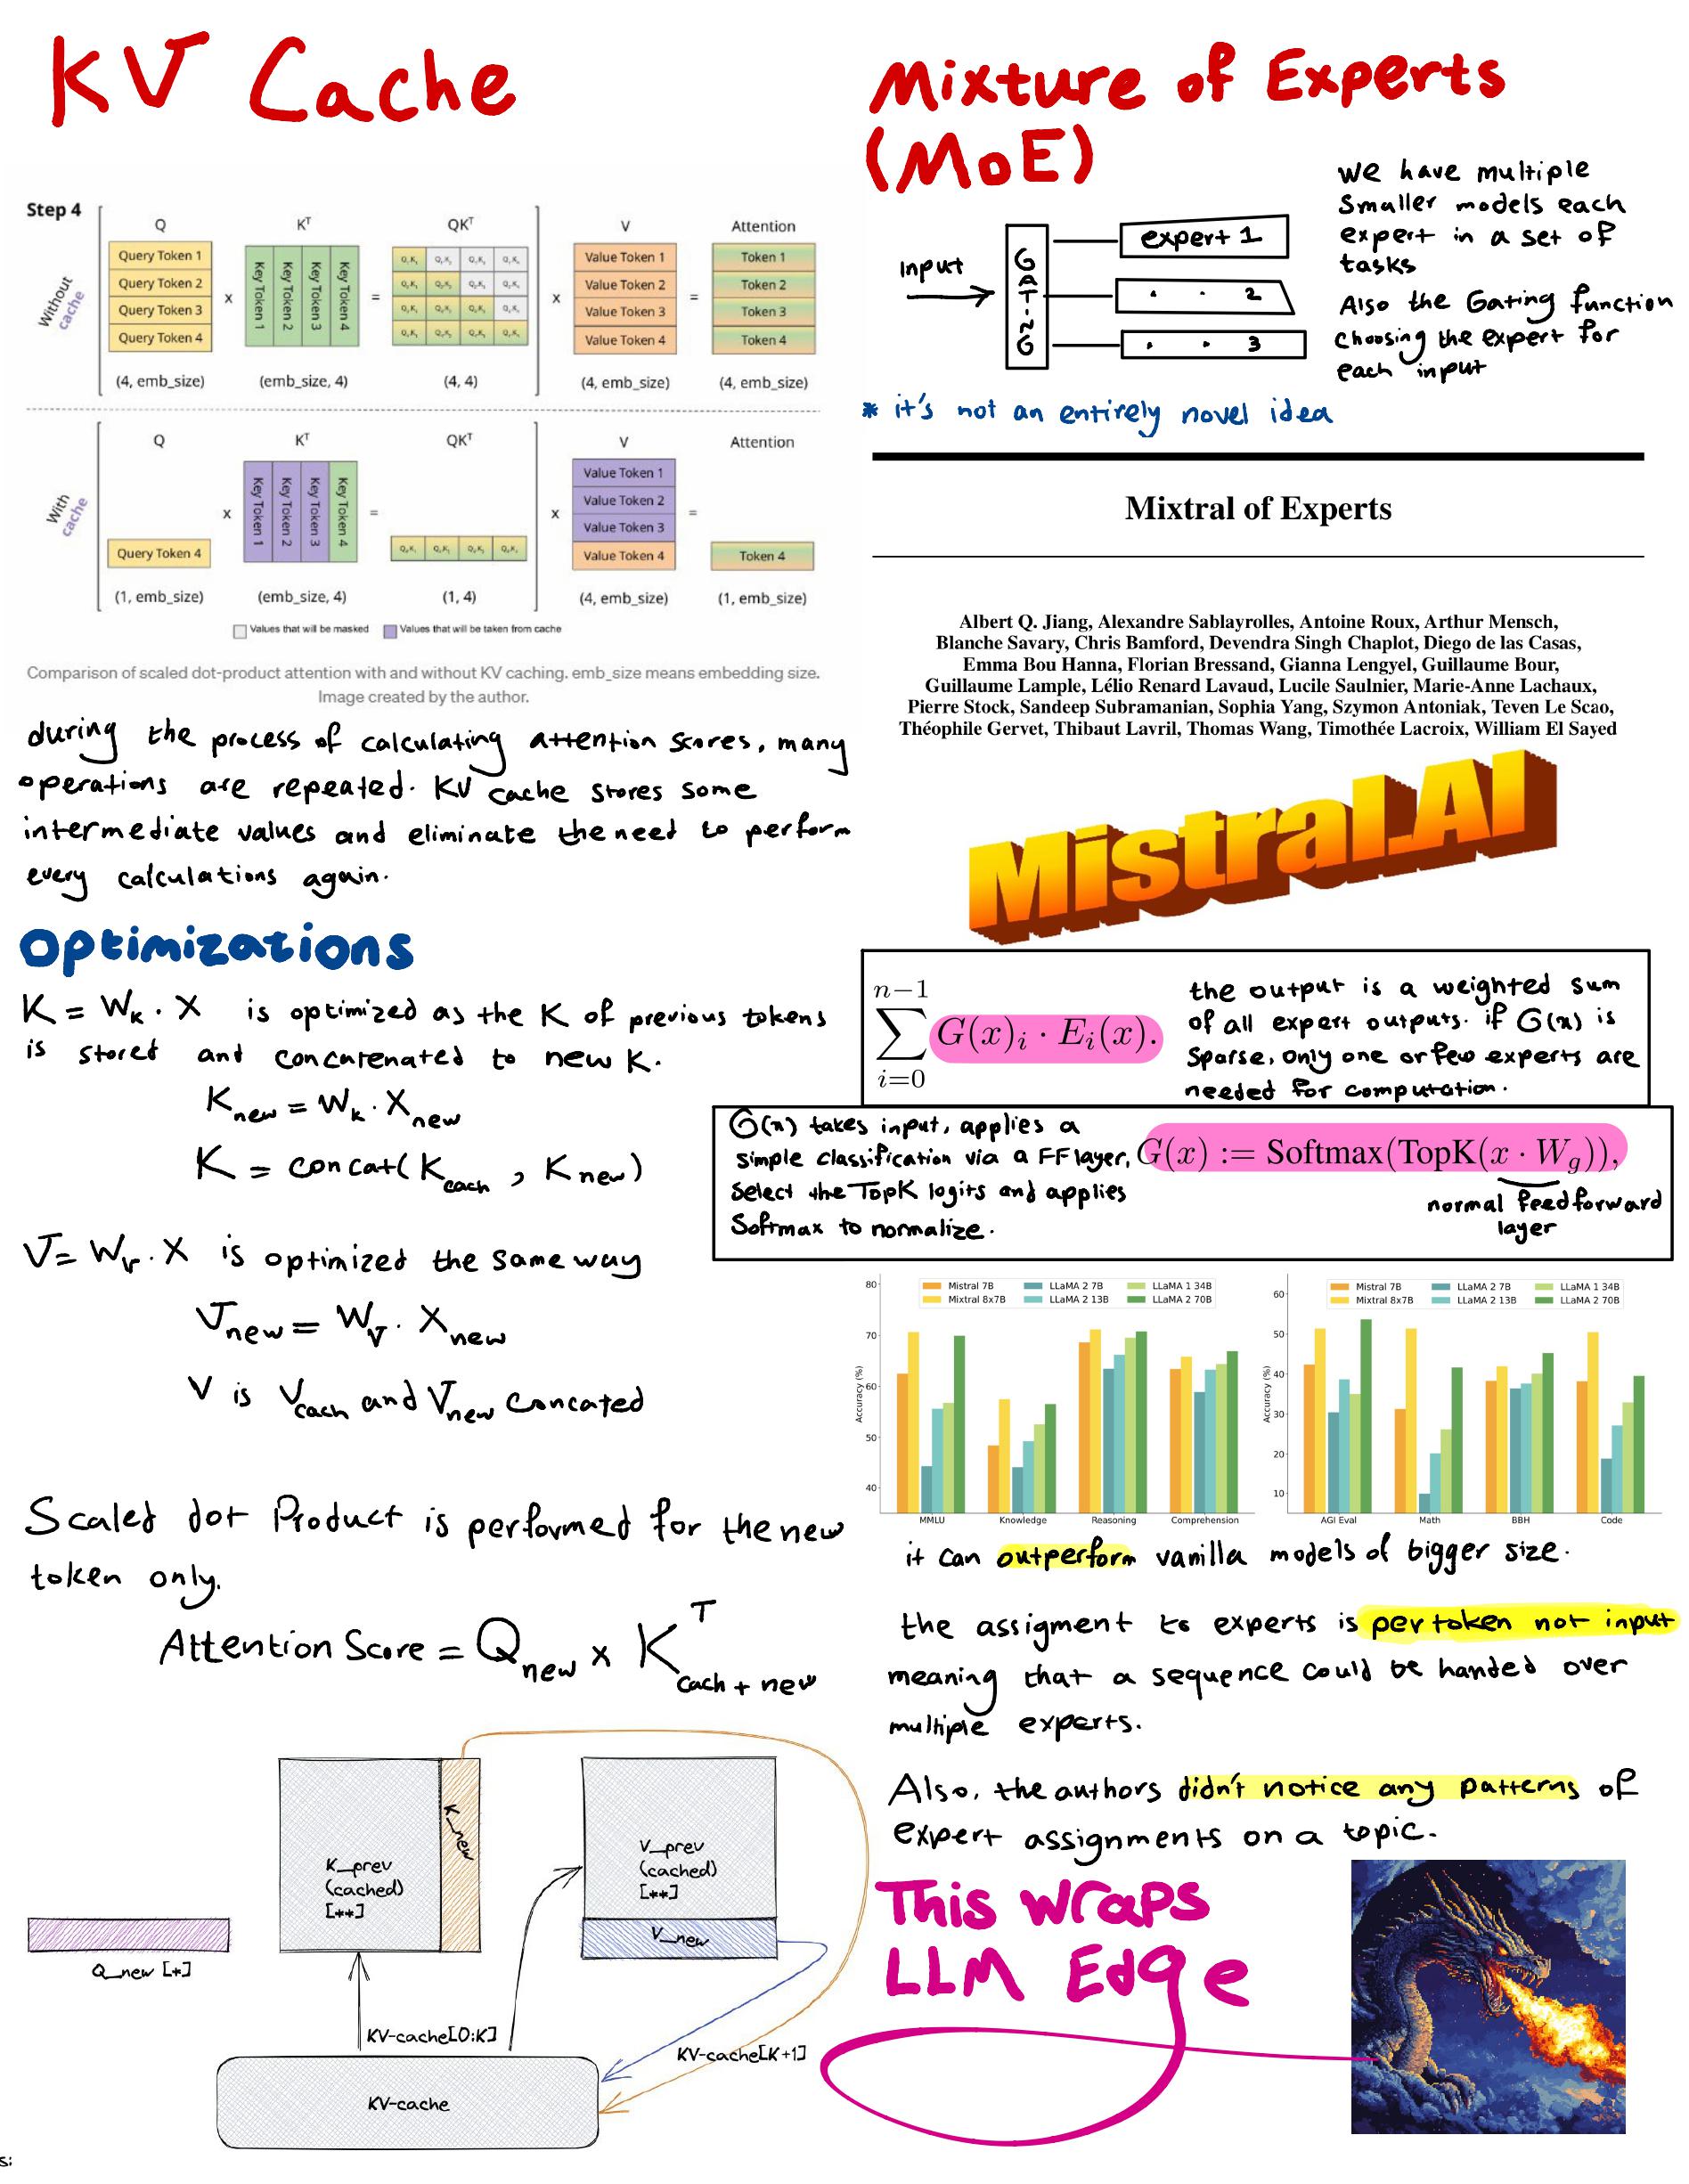 KV Cache
Step 4
Q
K^T
QK^T
V
Attention
Without
cache
Query Token 1
Query Token 2
Query Token 3
Query Token 4
x
Key Token 1
Key Token 2
Key Token 3
Key Token 4
=
x
Value Token 1
Value Token 2
Value Token 3
Value Token 4
=
Token 1
Token 2
Token 3
Token 4
(4, emb_size)
(emb_size, 4)
(4, 4)
(4, emb_size)
(4, emb_size)
Q
K^T
QK^T
V
Attention
With
cache
Query Token 4
x
Key Token 1
Key Token 2
Key Token 3
Key Token 4
=
x
Value Token 1
Value Token 2
Value Token 3
Value Token 4
=
Token 4
(1, emb_size)
(emb_size, 4)
(1, 4)
(4, emb_size)
(1, emb_size)
Values that will be masked
Values that will be taken from cache
Comparison of scaled dot-product attention with and without KV caching. emb_size means embedding size.
Image created by the author.
during the process of calculating attention scores, many
operations are repeated. KV cache stores some
intermediate values and eliminate the need to perform
every calculations again.
Optimizations
K = W_k . X is optimized as the K of previous tokens
is stored and concatenated to new K.
K_new = W_k . X_new
K = concat(K_cach , K_new)
V = W_v . X is optimized the same way
V_new = W_v . X_new
V is V_cach and V_new concated
Scaled dot Product is performed for the new
token only.
Attention Score = Q_new x K^T_cach + new
K_prev
(cached)
[**]
K_new
V_prev
(cached)
[**]
V_new
Q_new [*]
KV-cache[0:K]
KV-cache[K+1]
KV-cache
si
Mixture of Experts
(MoE)
Input
GATING
expert 1
. . 2
. . 3
we have multiple
smaller models each
expert in a set of
tasks
Also the Gating function
choosing the expert for
each input
* it's not an entirely novel idea
Mixtral of Experts
Albert Q. Jiang, Alexandre Sablayrolles, Antoine Roux, Arthur Mensch,
Blanche Savary, Chris Bamford, Devendra Singh Chaplot, Diego de las Casas,
Emma Bou Hanna, Florian Bressand, Gianna Lengyel, Guillaume Bour,
Guillaume Lample, Lélio Renard Lavaud, Lucile Saulnier, Marie-Anne Lachaux,
Pierre Stock, Sandeep Subramanian, Sophia Yang, Szymon Antoniak, Teven Le Scao,
Théophile Gervet, Thibaut Lavril, Thomas Wang, Timothée Lacroix, William El Sayed
Mistral.AI
n−1
∑ G(x)_i · E_i(x).
i=0
the output is a weighted sum
of all expert outputs. if G(x) is
sparse, only one or few experts are
needed for computation.
G(x) takes input, applies a
simple classification via a FF layer,
select the TopK logits and applies
Softmax to normalize.
G(x) := Softmax(TopK(x · W_g)),
normal feedforward
layer
Mistral 7B
Mixtral 8x7B
LLaMA 2 7B
LLaMA 2 13B
LLaMA 1 34B
LLaMA 2 70B
Accuracy (%)
80
70
60
50
40
MMLU
Knowledge
Reasoning
Comprehension
Mistral 7B
Mixtral 8x7B
LLaMA 2 7B
LLaMA 2 13B
LLaMA 1 34B
LLaMA 2 70B
Accuracy (%)
60
50
40
30
20
10
AGI Eval
Math
BBH
Code
it can outperform vanilla models of bigger size.
the assigment to experts is per token not input
meaning that a sequence could be handed over
multiple experts.
Also, the authors didn't notice any patterns of
expert assignments on a topic.
This wraps
LLM Edge